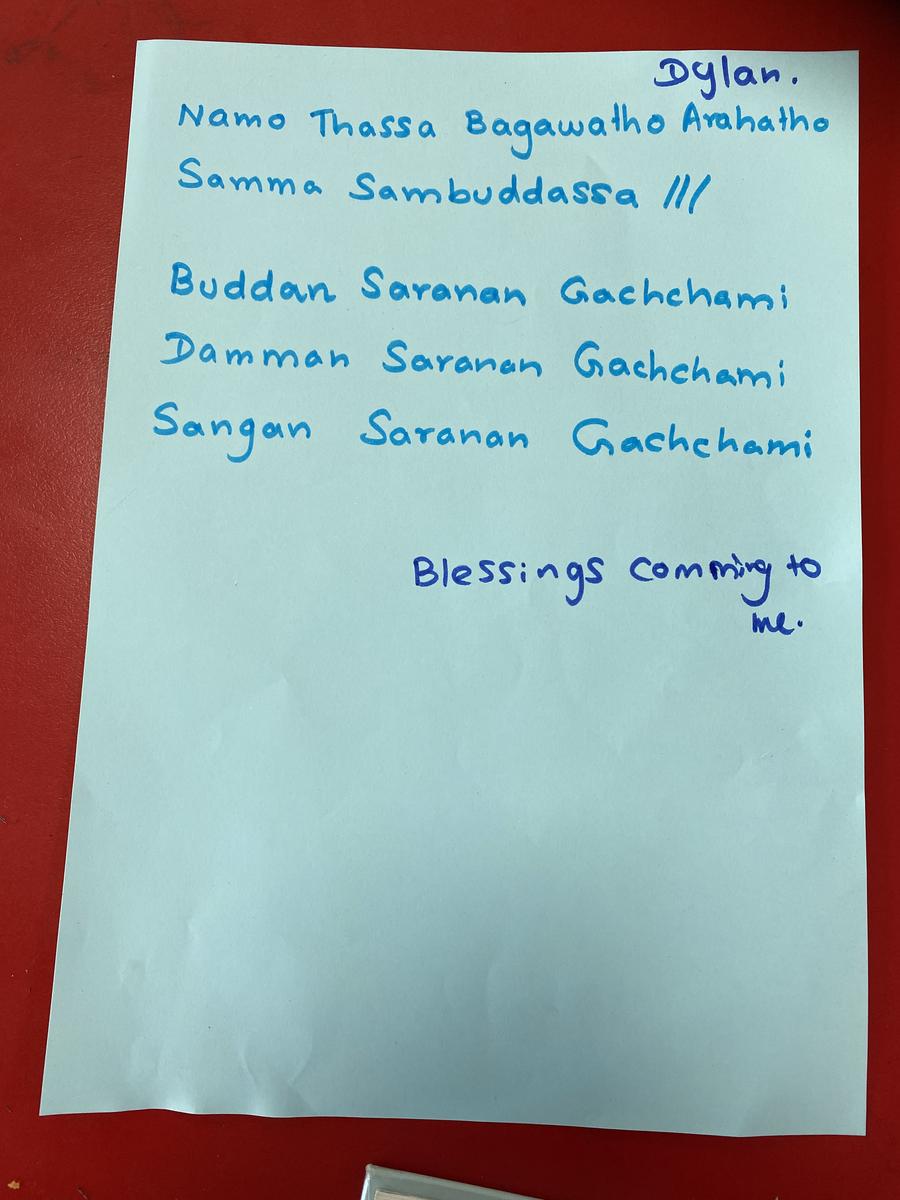 Dylan.
Namo Thassa Bagawatho Arahatho
Samma Sambuddassa ///
Buddan Saranan Gachchami
Damman Saranan Gachchami
Sangan Saranan Gachchami
Blessings comming to
me.